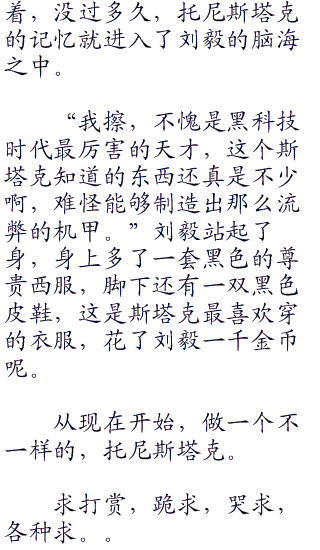 着，没过多久，托尼斯塔克
的记忆就进入了刘毅的脑海
之中。
“我擦，不愧是黑科技
时代最厉害的天才，这个斯
塔克知道的东西还真是不少
啊，难怪能够制造出那么流
弊的机甲。”刘毅站起了
身，身上多了一套黑色的尊
贵西服，脚下还有一双黑色
皮鞋，这是斯塔克最喜欢穿
的衣服，花了刘毅一千金币
呢。
从现在开始，做一个不
一样的，托尼斯塔克。
求打赏，跪求，哭求，
各种求。。